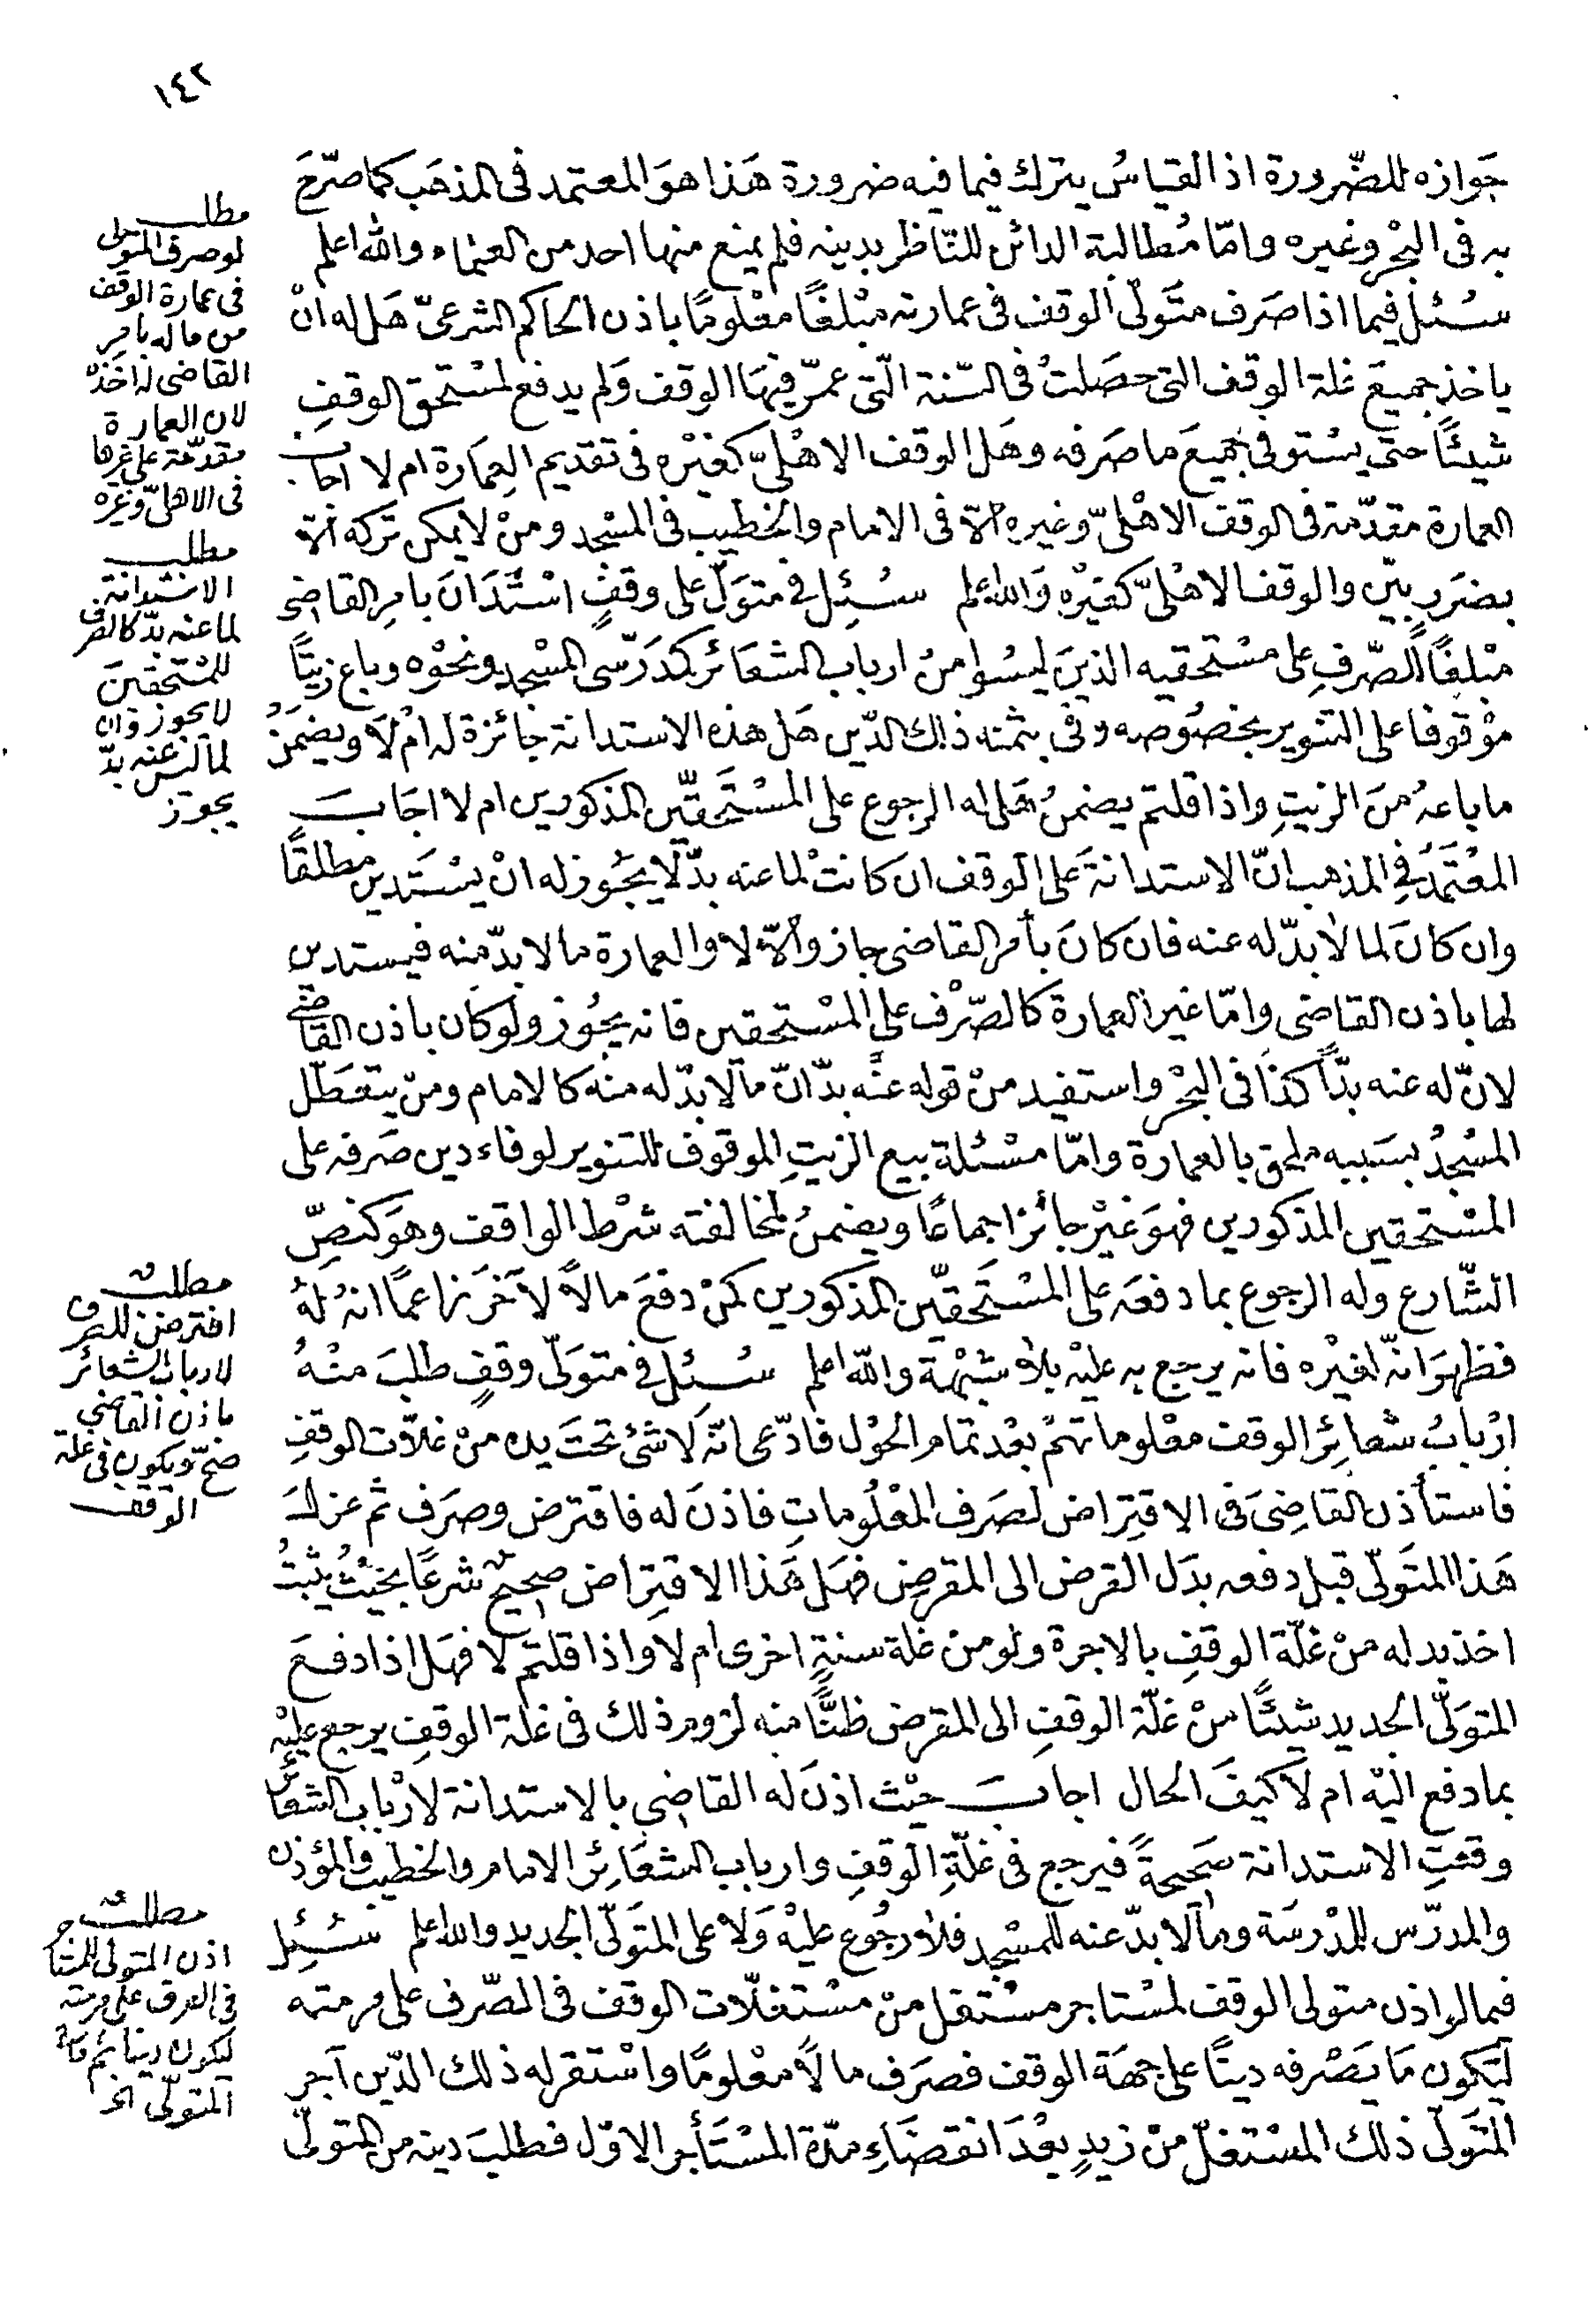 ١٤٢
جَوازه للضّرورة اذ القياسُ يترك فيما فيه ضرورة هَذا هوَ المعتمد فى المذهَب كما صرّحَ
به فى البحْر وغيره وامّا مُطالبة الدائن للنّاظر بدينه فلم يمنع منها احد من العلماء والله اعلم
سُئلَ فيما اذا صَرف متَولّى الوقف فى عمارته مبْلغًا معْلومًا باذن الحاكم الشرعىّ هَل له انْ
ياخذ جميعَ غلة الوقف التى حصَلتْ فى السّنة الّتى عمّر فيهَا الوقف وَلم يدفع لمسْتحق الوقفِ
شيئًا حتى يسْتوفى جميعَ ما صَرفه وهَل الوقف الاهْلىّ كغيْره فى تقديم العِمَارة ام لا اجاب
العمارة مقدّمة فى الوقف الاهْلىّ وغيره الّا فى الامام والخطيب فى المسْجد ومنْ لا يمكن تركه الّا
بضرَرٍ بيّن والوقف الاهْلىّ كغيْره وَالله اعلم سُئِل فى متوَلٍّ على وقفٍ اسْتَدَانَ بامرِ القاضى
مبْلغًا للصّرفِ على مسْتحقيه الذينَ ليسُوا منْ ارباب الشعَائر كمدَرّسى المسْجد ونحْوه وباع زيتًا
موْقوفا على التنوير بخصُوصه وفى بثمنه ذلك الدّين هَل هذه الاستدانة جائزة له امْ لَا ويضمنُ
ما باعهُ منَ الزيتِ واذا قلتم يضمنُ هَل له الرجوع على المسْتَحقّين المذكورين ام لا اجَابَ
المعْتمَدُ فى المذهب انّ الاستدانةَ على الوقف ان كانتْ لما عنه بدّ لَا يجُوز له انْ يسْتَدين مطلقًا
وان كانَ لما لا بدّ له عنه فان كانَ بأمر القاضى جاز والّا لا والعمارة ما لا بدّ منه فيستدين
لها باذن القاضى وامّا غير العمارة كالصّرْف على المسْتحقين فانه يجُوز ولو كان باذن القاضى
لانّ له عنه بدّاً كذَا فى البحْر واستفيد منْ قوله عنْه بدّ انّ ما لا بدّ له منه كالامام ومنْ يتعَطّل
المسْجدُ بسَببه ملحق بالعمارة وامّا مسْئلة بيع الزيتِ الموقوف للتنوير لوفاء دين صَرفه على
المسْتحقين المذكورين فهوَ غيْر جائز اجماعًا ويضمنُ لمخالفته شرْط الواقف وهوَ كنصِّ
الشّارع وله الرجوع بما دفعَه على المسْتَحقّين المذكورين كمنْ دفعَ مالاً لآخَر زاعمًا انهُ لهُ
فظهرَ انّه لغيْره فانه يرجع به عليْه بلا شبْهة والله اعلم سُئِل فى متوَلّى وقفٍ طلبَ منْهُ
ارْبابُ شعائِر الوقف معْلوماتهمْ بعْد تمام الحوْل فادّعى انّه لا شئ تحتَ يده منْ غلاّت الوقفِ
فاستأذن القاضِىَ فى الاقتِراض لصَرف المعْلُوماتِ فاذنَ له فاقترض وصرَف ثم عزلَ
هَذا المتَولّى قبل دفعه بدَل القرض الى المقرضِ فهَل هَذا الاقتِراض صحِيحٌ شرعًا بحَيْثُ يثبتُ
اخذ بدله منْ غلّة الوقفِ بالاجرة ولو منْ غلة سنةٍ اخرى ام لا واذا قلتمْ لا فهَل اذا دفعَ
المتوَلّى الجديد شيئًا منْ غلّة الوقفِ الى المقرض ظنًّا منه لزوم ذلك فى غلة الوقفِ يرجع عليْه
بما دفع اليْه ام لَا كيفَ الحال اجابَ حيْث اذنَ له القاضِى بالاستدانة لارْباب الشعائر
وقعتِ الاستدانة صَحيحةً فيرجع فى غلّةِ الوقفِ وارباب الشعَائِر الامام والخطيب والمؤذن
والمدرّس للمدْرسَة وما لا بدّ عنه للمسْجد فلا رجُوع عليْه وَلا على المتوَلّى الجديد والله اعلم سُئِل
فيما لو اذن متولى الوقف لمسْتاجر مسْتغل منْ مسْتغلّات الوقف فى الصّرف على مرمته
ليَكون مَا يَصْرفه دينًا على جهَة الوقف فصرَف مالاً معْلومًا واسْتقر له ذلك الدّين آجر
المتَولّى ذلك المسْتغلّ منْ زيدٍ بعْدَ انقضَاءِ مدّة المسْتَأجر الاوّل فطلبَ دينه من المتولّى
مطلب
لو صرف المتولى
فى عمارة الوقف
من ماله بامر
القاضى له اخذه
لان العمارة
مقدمة على غيرها
فى الاهلىّ وغيره
مطلب
الاستدانة
لما عنه بدّ كالصرف
للمستحقين
لا يجوز وان
لما ليس عنه بدّ
يجوز
مطلب
اقترض للصرف
لارباب الشعائر
باذن القاضى
صحّ ويكون فى غلة
الوقف
مطلب
اذن المتولى للمستاجر
فى الصرف على مرمته
ليكون دينا ثم
المتولّى الخ